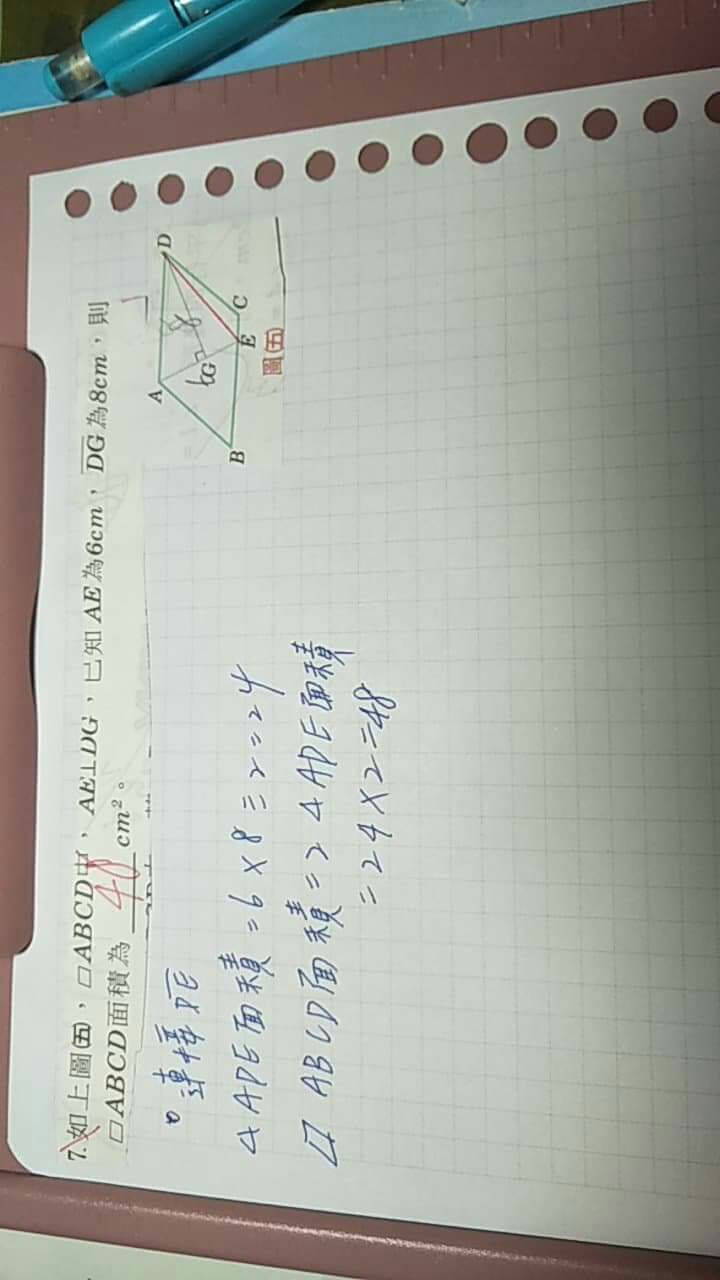 7.如上圖(五)，□ABCD中，AE⊥DG，已知AE為6cm，DG為8cm，則
□ABCD面積為 48 cm²。
A
D
8
6
G
B
E
C
圖(五)
。連接DE
△ADE面積=6×8÷2=24
▱ABCD面積=2△ADE面積
=24×2=48